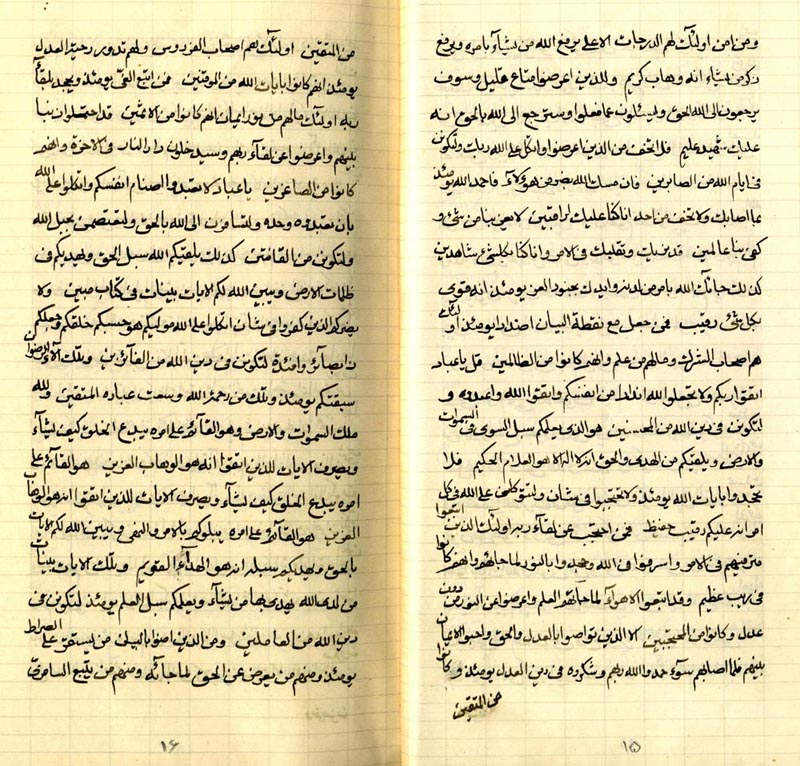 ومن امن اولئك لهم الدرجات الاعلى يرفع الله من يشآء بامره ويرفع
ذكر من يشآء انه وهاب كريم وللذين اعرضوا متاع قليل وسوف
يرجعون الى الله الحق وليسئلون عما فعلوا وسترجع الى الله بالحق انه
عليك شهيد عليم فلا تخف من الذين اعرضوا واتكل على الله ربك ولتكونن
فى ايام الله من الصابرين فان مسك الله بضر من هؤلاء فاحمد الله يومئذ
بما اصابك ولا تخف من احد انا كنا عليك لراقبين لا يعزب منا من شئ و
كفى بنا عالمين قد نريك وتقلبك فى الامر وانا كنا بكلشئ شاهدين
كذلك جائك الله بامر من لدنه وايدك بجنود العز يومئذ انه قوى
بكل شئ رقيب فمن جعل مع نقطة البيان اضدادا يومئذ اولئك
هم اصحاب الشرك ومالهم من علم وانهم كانوا من الظالمين قل يا عباد
اتقوا ربكم ولا تجعلوا لله اندادا من انفسكم واتقوا الله واعبدوه و
لتكونن فى دين الله من المحسنين هو الذى يعلمكم سبل السوى فى السموات
والارض ويلقيكم من الهدى والحق انه لا اله الا هو العلام الحكيم فلا
تجحدوا بايات الله يومئذ ولا تحتجبوا فى شان ولتتوكلن على الله فى كل
امر انه عليكم رقيب حفيظ فمن احتجب عن لقآء ربه اولئك الذين اتبعوا
مترفيهم فى الامر واسرفوا فى الله وجحدوا بالنور لما جائهم وانهم كانوا
فى ريب عظيم وقد اتبعوا الاهوآء لما جائهم العلم واعرضوا عن النور من دون
عدل وكانوا من المحتجبين الا الذين تواصوا بالعدل والحق واحبوا الايمان
بينهم فلما اصابهم سوء حمدوا الله ربهم وشكروه فى دين العدل يومئذ وكانوا
من المتقين
١٥
من المتقين اولئك هم اصحاب الفردوس ولهم تدور رحية العدل
يومئذ انهم كانوا بايات الله من الموقنين فمن اتبع الغى يومئذ ويجحد بلقآء
ربه اولئك مالهم من نور ايمان انهم كانوا من الاثمين قد احتملوا
بينهم واعرضوا عن لقآء ربهم وسيدخلون دار النار فى الاخرة وانهم
كانوا من الصاغرين يا عباد لا تعبدوا اصنام انفسكم واتكلوا على الله
بان تعبدوه وحده ولتسافرن الى الله بالحق ولتعتصمن بحبل الله
ولتكونن من القانتين كذلك يلقيكم الله سبل الحق ويهديكم فى
ظلمات الارض ويبين الله لكم الايات بينات فى كتاب مبين ولا
يضركم الذين كفروا فى شان اتكلوا على الله موليكم هو حسبكم خلقكم وجعلكم
ذا بصائر وافئدة لتكونن فى دين الله من الفائزين وتلك الآء الرضوان
سبقتكم يومئذ وتلك من رحمة الله وسعت عباده المتقين ولله
ملك السموات والارض وهو القآئم على امره يبدع الخلق كيف يشآء
ويصرف الايات للذين اتقوا انه هو الوهاب العزيز هو القآئم على
امره يبدع الخلق كيف يشآء ويصرف الايات للذين اتقوا انه هو الوهاب
العزيز هو القآئم على امره يبلوكم بالامر والنهى ويبين الله لكم الايات
بالحق ويهديكم سبله انه هو الهدآء القويم وتلك الايات بينات
من لدى الله يهدى بها من يشآء ويعلمكم سبل العلم يومئذ لتكونن فى
دين الله من العاملين ومن الذين امنوا بالبيان من يستقر على الصراط
يومئذ ومنهم من يعرض عن الحق لما جائه ومنهم من يتبع السامرى
١٦